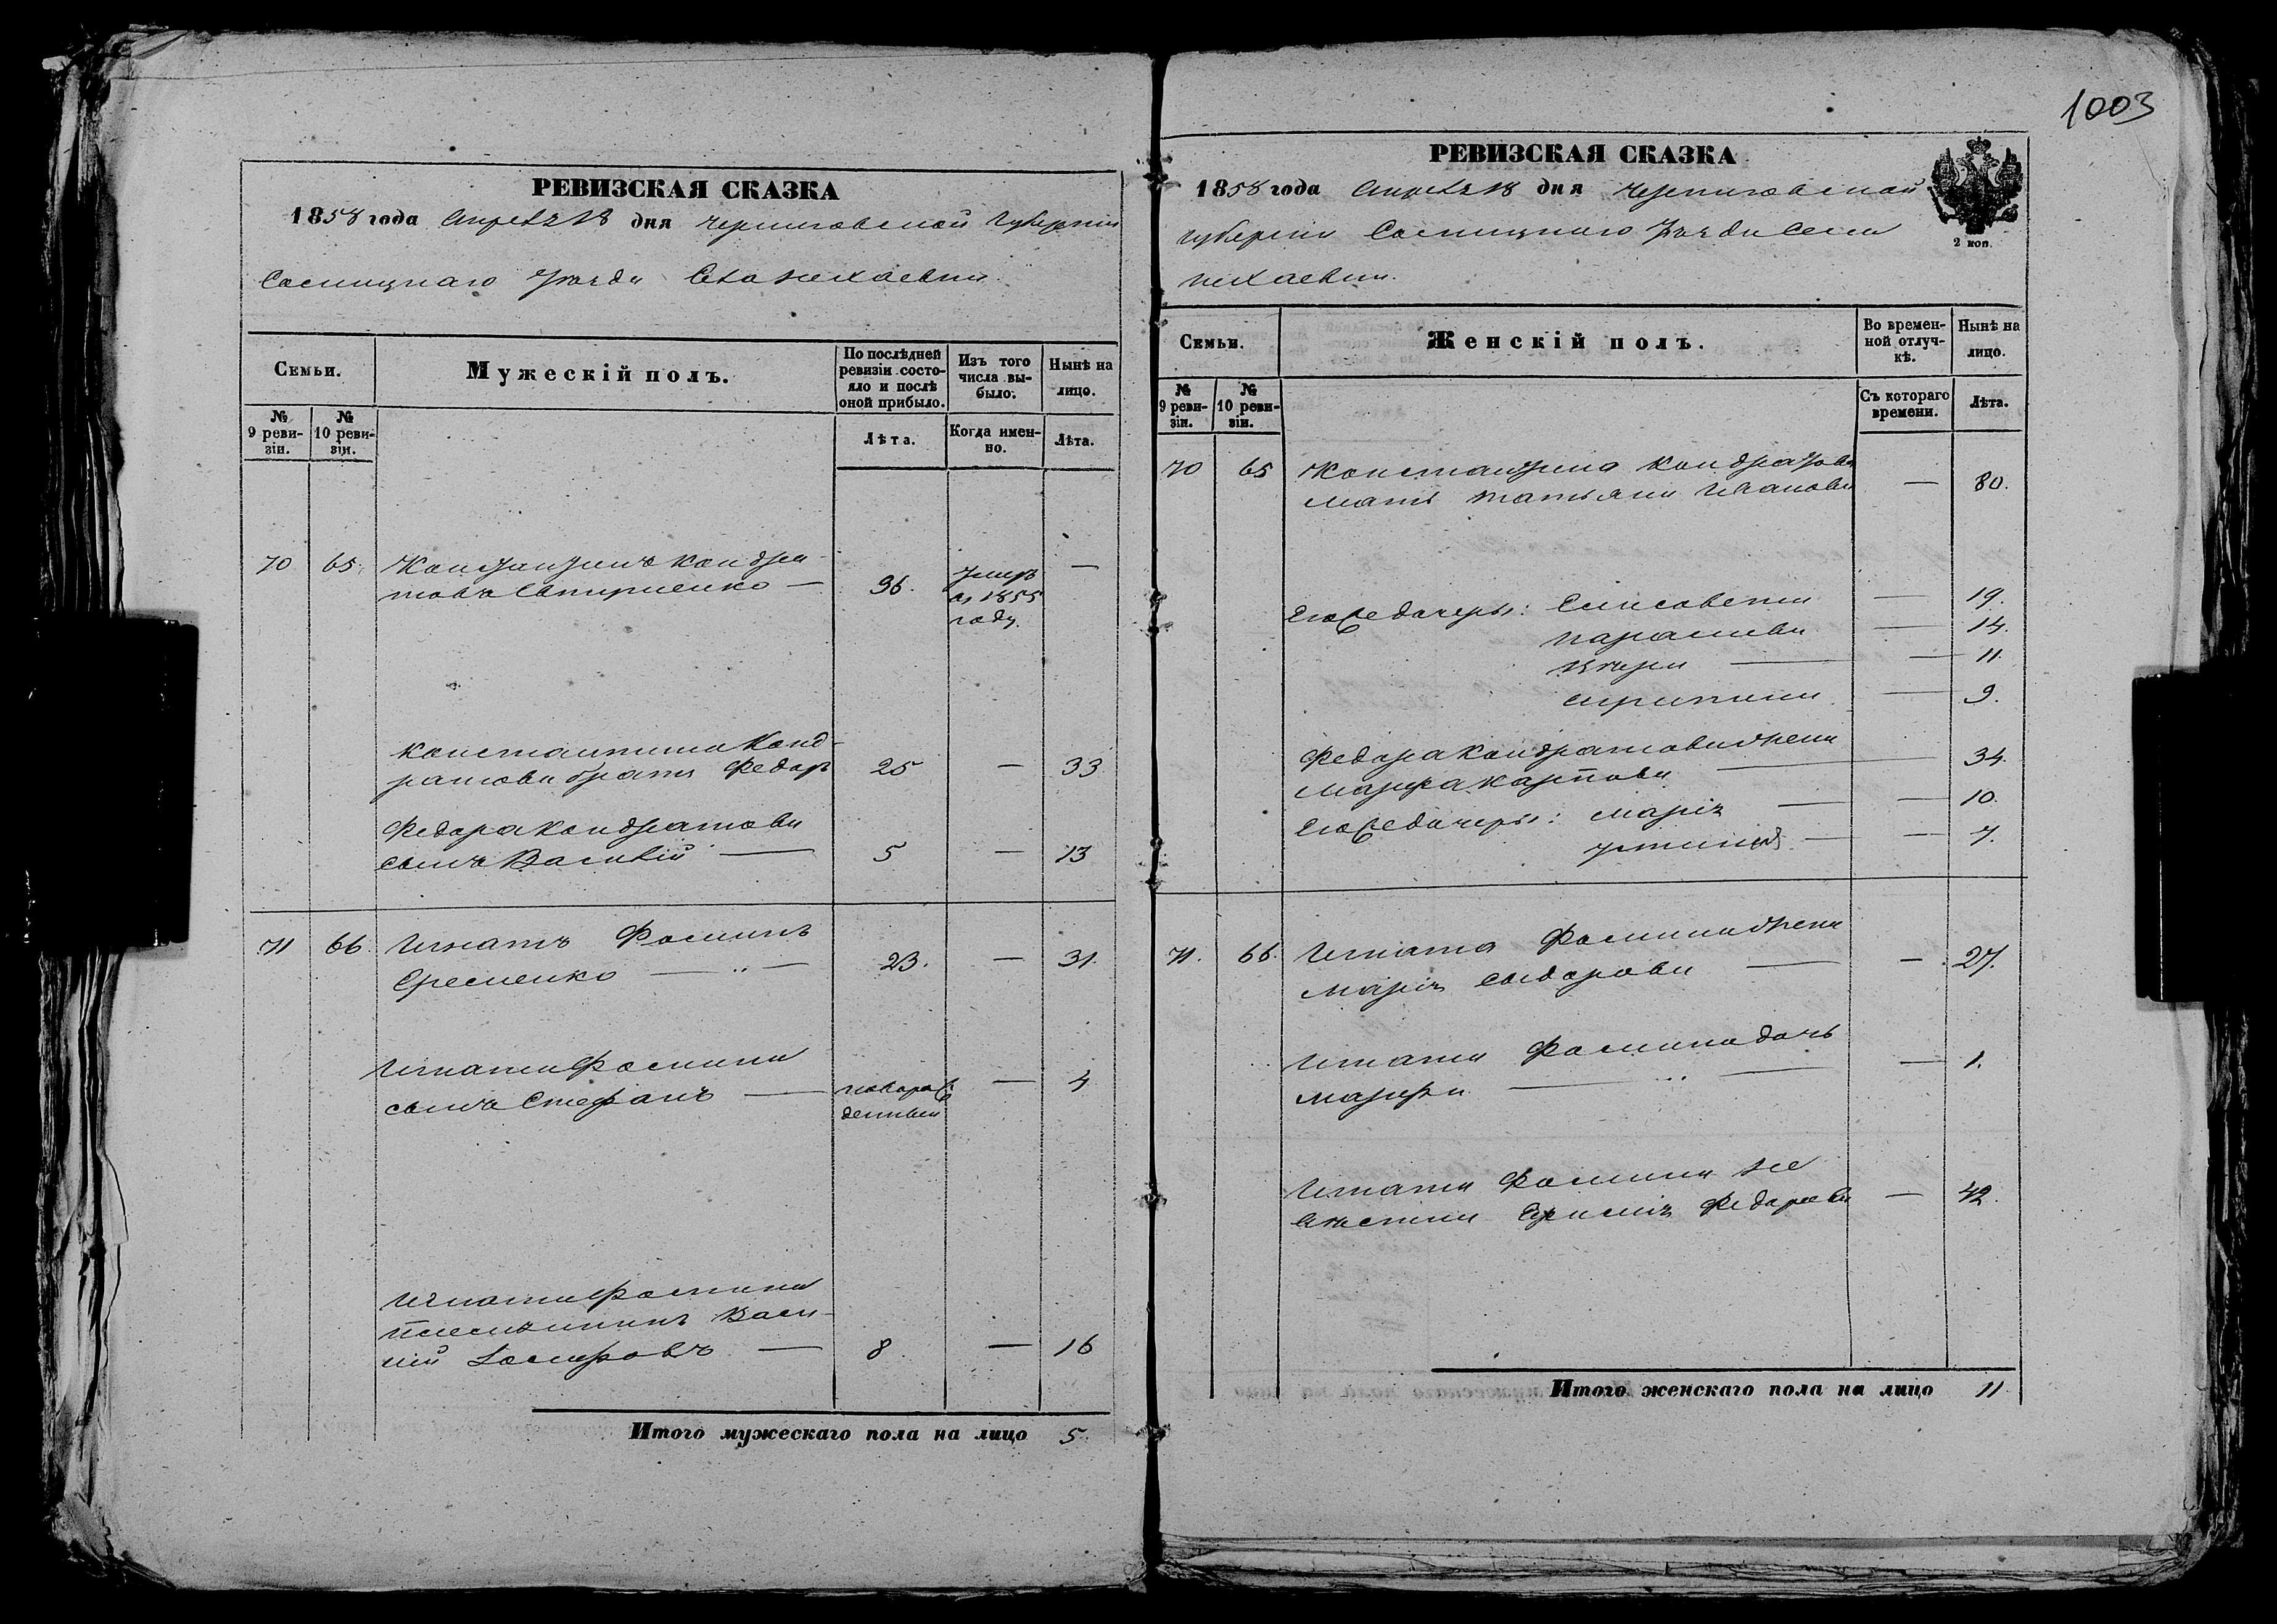 1003
РЕВИЗСКАЯ СКАЗКА
1858 года Апреля 18 дня Черниговской Губернии
Сосницкаго Уезда Села
РЕВИЗСКАЯ СКАЗКА
1858 года Апреля 18 дня Черниговской
Губернии Сосницкаго Уезда Села
2 коп.
Семьи.
Мужескій полъ.
По послѣдней ревизіи состояло и послѣ оной прибыло.
Изъ того числа выбыло.
Нынѣ на лицо.
№ 9 ревизіи.
№ 10 ревизіи.
Лѣта.
Когда именно.
Лѣта.
70 65. Константинъ Кондра
товъ — 36. Умеръ —
въ 1855
году.
Константина Конд-
ратова братъ Федоръ 25 — 33
Федора Кондратова
сынъ Василій — 5 — 13
71 66. Игнатъ Фоминъ
Еременко — „ — 23. — 31.
Игната Фомина
сынъ Стефанъ — новорож — 4
денный
Игната Фомина
племянникъ Васи-
лій — 8. — 16
Итого мужескаго пола на лицо 5.
Семьи.
Женскій полъ.
Во временной отлучкѣ.
Нынѣ на лицо.
№ 9 ревизіи.
№ 10 ревизіи.
Съ котораго времени.
Лѣта.
70 65 Константина Кондратова
мать Татьяна Иванова — 80.
Его же дочери: Елисавета — 19.
Параскева — 14.
— — 11.
— 9.
Федора Кондратова жена
Марфа Карпова — 34.
Его же дочери: Марія — — 10.
Устинія — — 7.
71. 66. Игната Фомина жена
Марія Сидорова — — 27.
Игната Фомина дочь
Марфа — „ — — 1.
Игната Фомина же
Федорова — 42.
Итого женскаго пола на лицо 11